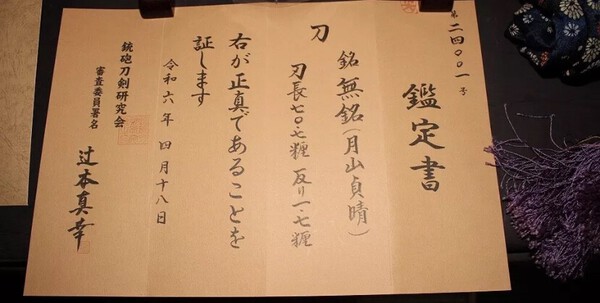 第二四〇〇一号
鑑定書
銘 無銘(月山貞晴)
刀
刃長七〇・七糎 反り一・七糎
右が正真であることを
証します
令和六年四月十八日
銃砲刀剣研究会
審査委員署名
辻本真幸